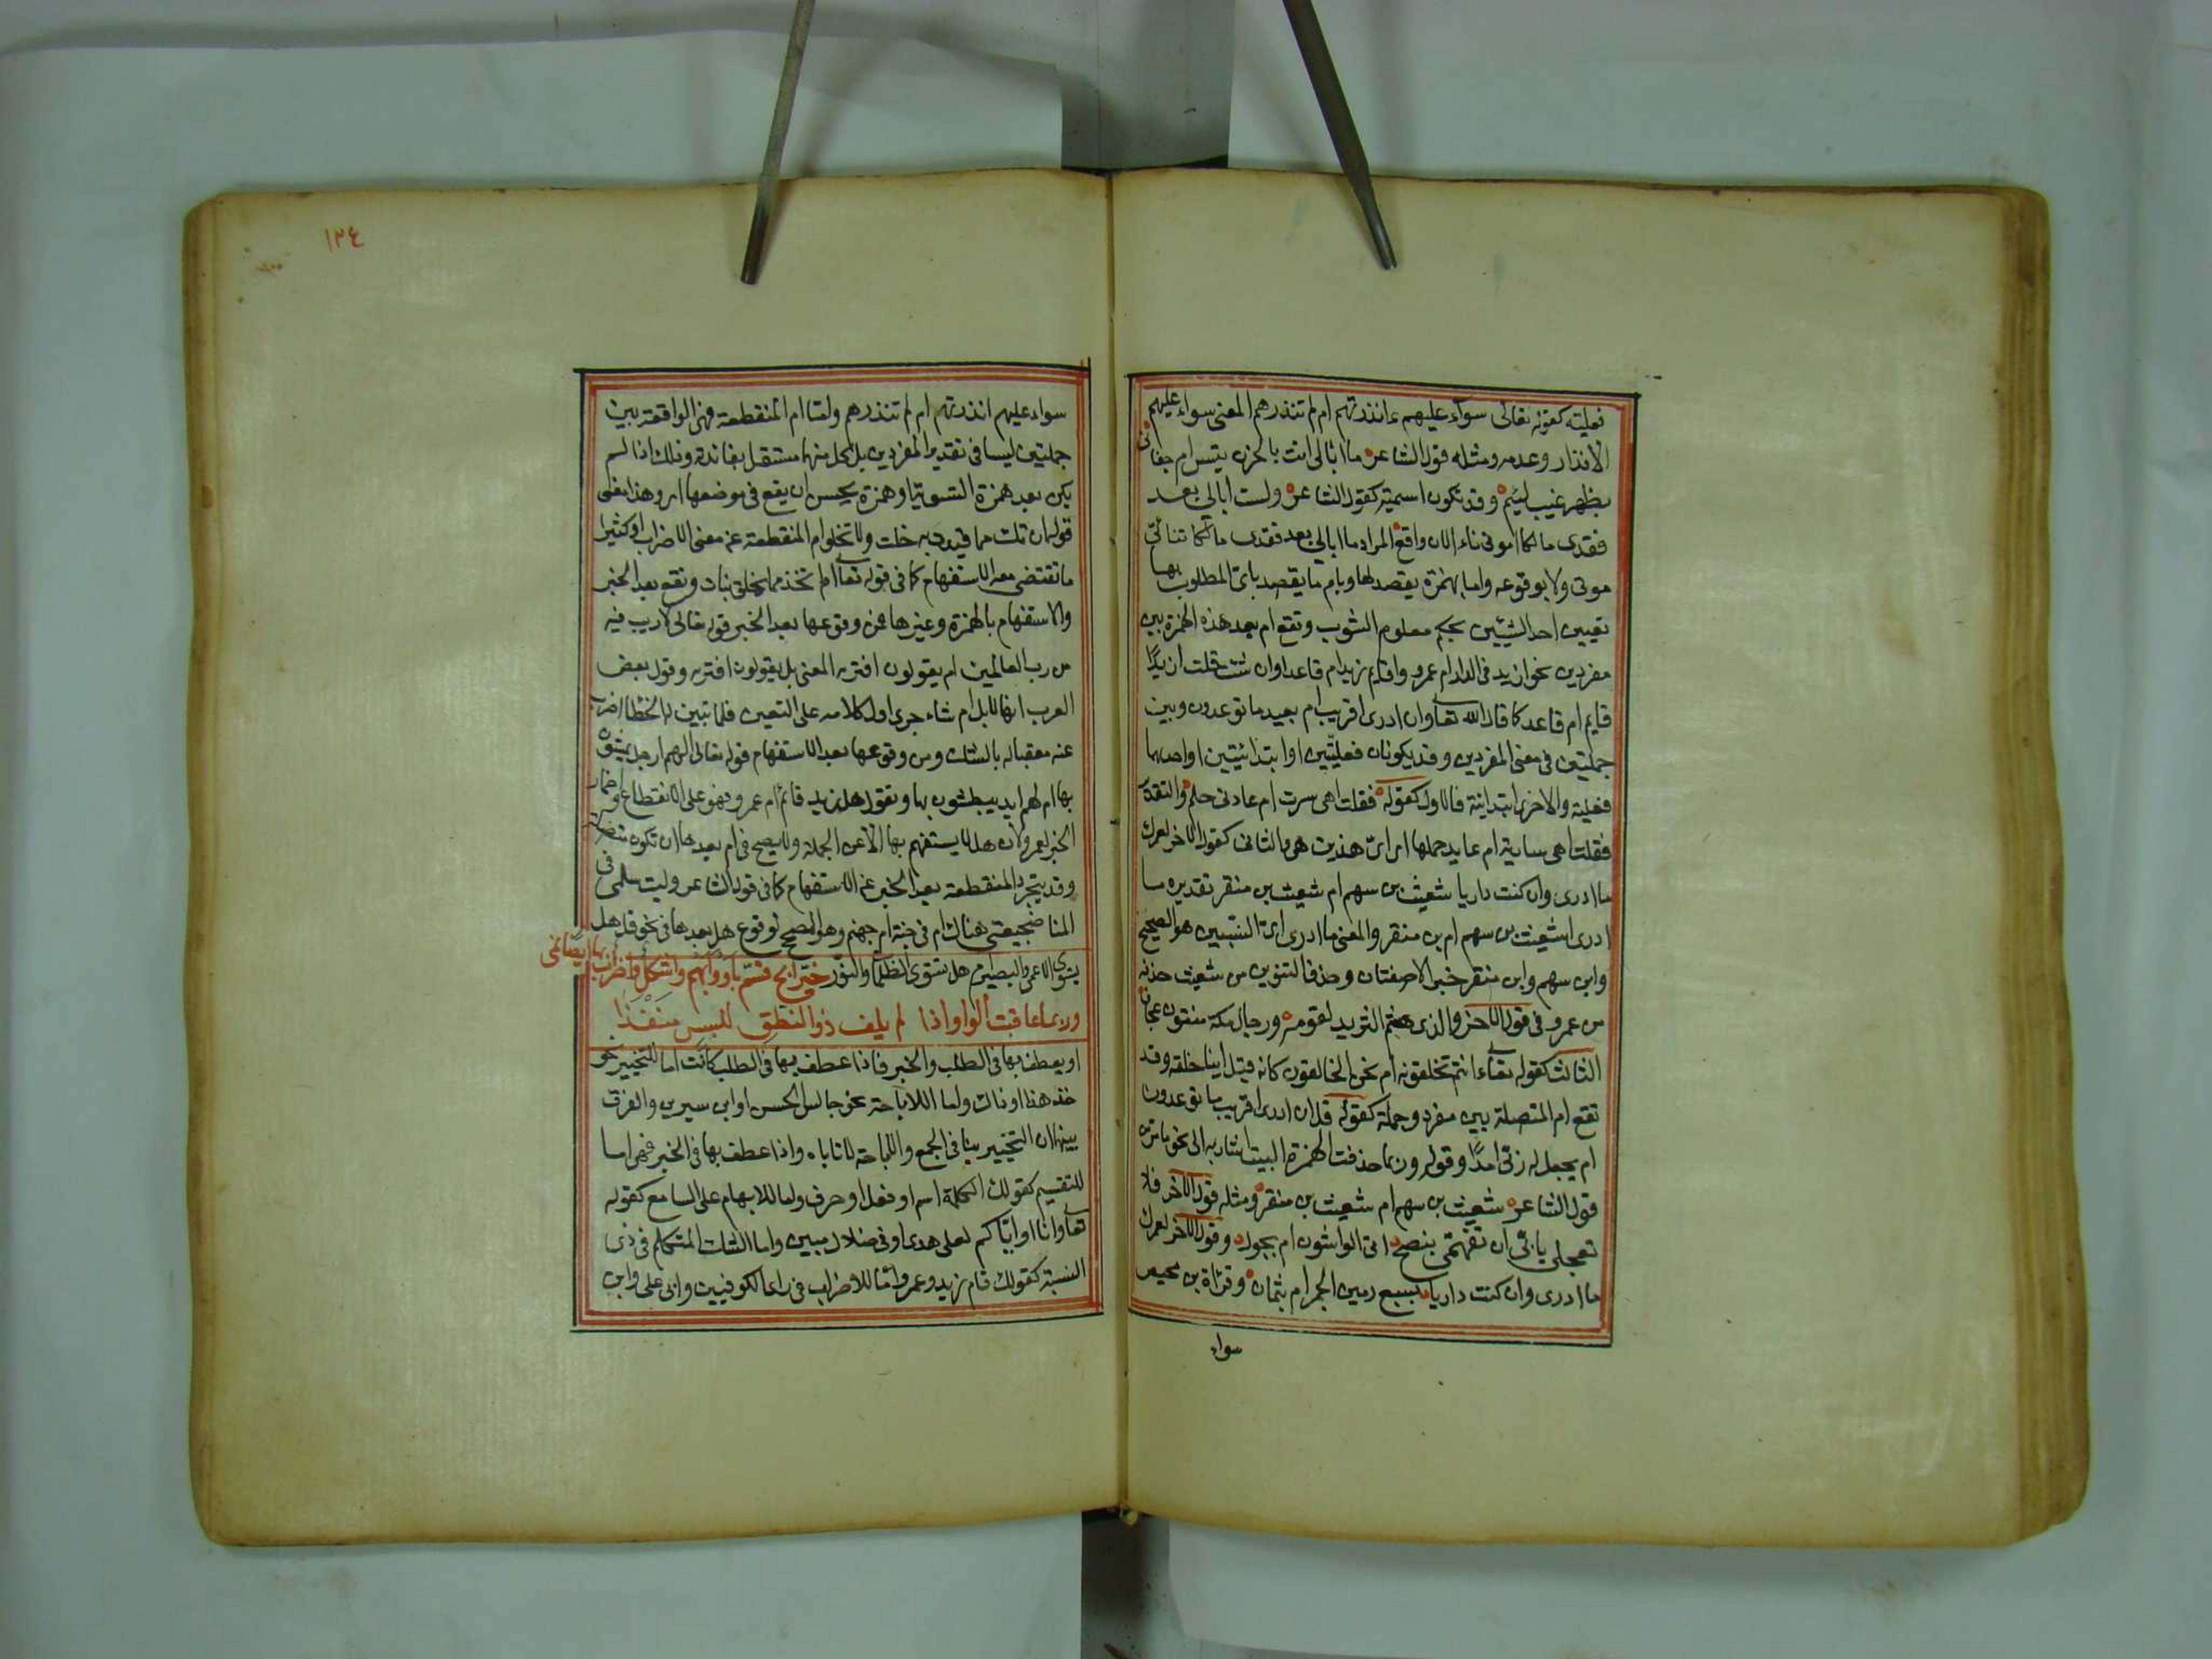 فعلية كقوله تعالى سواء عليهم ءانذرتهم ام لم تنذرهم المعنى سواء عليهم
الانذار وعدمه ومثله قول الشاعر ما ابالى انب بالحزن تيس ام جفانى
بظهر غيب لئيم وقد تكون اسمية كقول الشاعر ولست ابالى بعد
فقدى مالكا اموتى ناء ام هو الان واقع المراد ما ابالى بعد فقدى مالكا بتنائى
موتى ولا بوقوعه واما بهمزة يقصد بها وبام ما يقصد باى المطلوب بها
تعيين احد الشيئين بحكم معلوم الثبوت وتقع ام بعد هذه الهمزة بين
مفردين نحو ازيد فى الدار ام عمرو واقايم زيد ام قاعد وان شئت قلت ازيد
قايم ام قاعد كما قال الله تعالى وان ادرى اقريب ام بعيد ما توعدون وبين
جملتين فى معنى المفردين وقد يكونان فعليتين او ابتدائيتين او احداهما
فعلية والاخرى ابتدائية فالاول كقوله فقلت اهى سرت ام عادنى حلم والتقدير
فقلت اهى سارية ام عايد حلمها اى اى هذين هى والثانى كقول الاخر لعمرك
ما ادرى وان كنت داريا شعيث بن سهم ام شعيث بن منقر تقديره ما
ادرى اشعيث بن سهم ام بن منقر والمعنى ما ادرى اى النسبين هو الصحيح
وابن سهم وابن منقر خبران لا صفتان وحذف التنوين من شعيث حذفه
من عمرو فى قول الاخر عمرو الذى هشم الثريد لقومه ورجال مكة مسنتون عجاف
الثالث كقوله تعالى ءانتم تخلقونه ام نحن الخالقون كانه قيل اينا خلقه وقد
تقع ام المتصلة بين مفرد وجملة كقوله قل ان ادرى اقريب ما توعدون
ام يجعل له ربى امدا وقوله وربما حذفت الهمزة البيت اشار به الى نحو ما مر من
قول الشاعر شعيث بن سهم ام شعيث بن منقر ومثله قول الاخر فلا
تعجلى يا مى ان تتفهمى بنصح اتى الواشون ام بحبول وقول الاخر لعمرك
ما ادرى وان كنت داريا بسبع رمين الجمر ام بثمان وقراءة بن محيصن
سواء
١٢٤
سواء عليهم انذرتهم ام لم تنذرهم واما ام المنقطعة فهى الواقعة بين
جملتين ليسا فى تقدير المفردين بل كل منهما مستقل بفائدته وذلك اذا لم
يكن بعد همزة التسوية او همزة يحسن ان يقع فى موضعها اى وهذا معنى
قوله ان تك مما قيدت به خلت ولا تخلو ام المنقطعة عن معنى الاضراب وكثيرا
ما تقتضى معه الاستفهام كما فى قوله تعالى ام اتخذ مما يخلق بنات وتقع بعد الخبر
والاستفهام بالهمزة وغيرها فمن وقوعها بعد الخبر قوله تعالى لا ريب فيه
من رب العالمين ام يقولون افتريه المعنى بل يقولون افتريه وقول بعض
العرب انها لابل ام شاء جرى اول كلامه على التعيين فلما تبين له الخطا اضرب
عنه معقبا له بالشك ومن وقوعها بعد الاستفهام قوله تعالى الهم ارجل يمشون
بها ام لهم ايد يبطشون بها وتقول هل زيد قائم ام عمرو فهو على الانقطاع واضمار
الخبر لعمرو لان هل لا يستفهم بها الا عن الجملة ولا يصح فى ام بعدها ان تكون متصلة
وقد تتجرد المنقطعة بعد الخبر عن الاستفهام كما فى قول الشاعر وليت سلمى فى
المنا ضجيعتى هنالك ام فى جنة ام جهنم وهو المصحح لوقوع هل بعدها فى نحو قل هل
يستوى الاعمى والبصير ام هل تستوى الظلمات والنور خير ابح قسم باو وابهم واشكك واضراب بها ايضا نمى
وربما عاقبت الواو اذا لم يلف ذو النطق للبس منفذا
او يعطف بها فى الطلب والخبر فاذا عطف بها فى الطلب كانت اما للتخيير نحو
خذ هذا او ذاك واما للاباحة نحو جالس الحسن او ابن سيرين والفرق
بينهما ان التخيير ينافى الجمع والاباحة لا تاباه واذا عطف بها فى الخبر فهى اما
للتقسيم كقولك الكلمة اسم او فعل او حرف واما للابهام على السامع كقوله
تعالى وانا او اياكم لعلى هدى او فى ضلال مبين واما لشك المتكلم فى ذى
النسبة كقولك قام زيد او عمرو واما للاضراب فى راى الكوفيين وابى على وابن